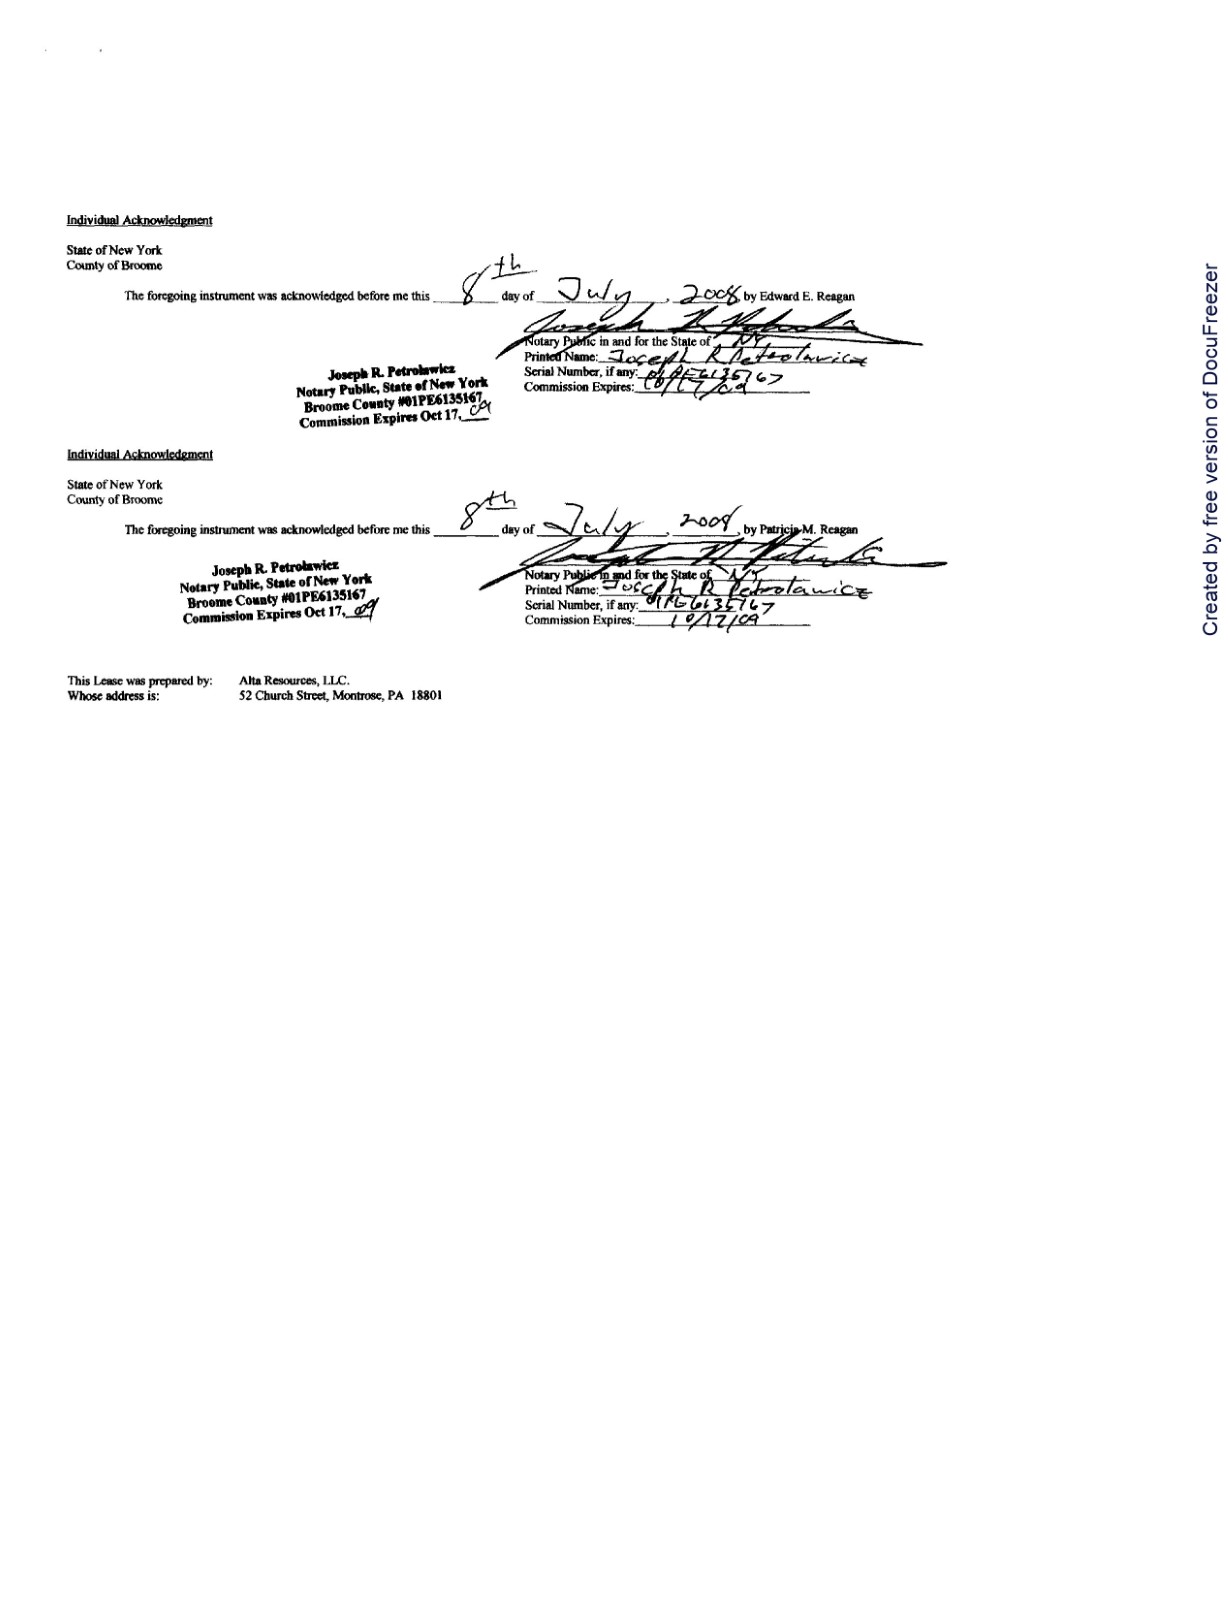 Individual Acknowledgment
State of New York
County of Broome
The foregoing instrument was acknowledged before me this 8th day of July, 2008 by Edward E. Reagan
Notary Public in and for the State of NY
Printed Name: Joseph R Petrolawicz
Serial Number, if any: 01PE6135167
Commission Expires: 10/17/09
Joseph R. Petrolawicz
Notary Public, State of New York
Broome County #01PE6135167
Commission Expires Oct 17, 09
Individual Acknowledgment
State of New York
County of Broome
The foregoing instrument was acknowledged before me this 8th day of July, 2008, by Patricia M. Reagan
Notary Public in and for the State of NY
Printed Name: Joseph R Petrolawicz
Serial Number, if any: 01PE6135167
Commission Expires: 10/17/09
Joseph R. Petrolawicz
Notary Public, State of New York
Broome County #01PE6135167
Commission Expires Oct 17, 09
This Lease was prepared by: Alta Resources, LLC.
Whose address is: 52 Church Street, Montrose, PA 18801
Created by free version of DocuFreezer